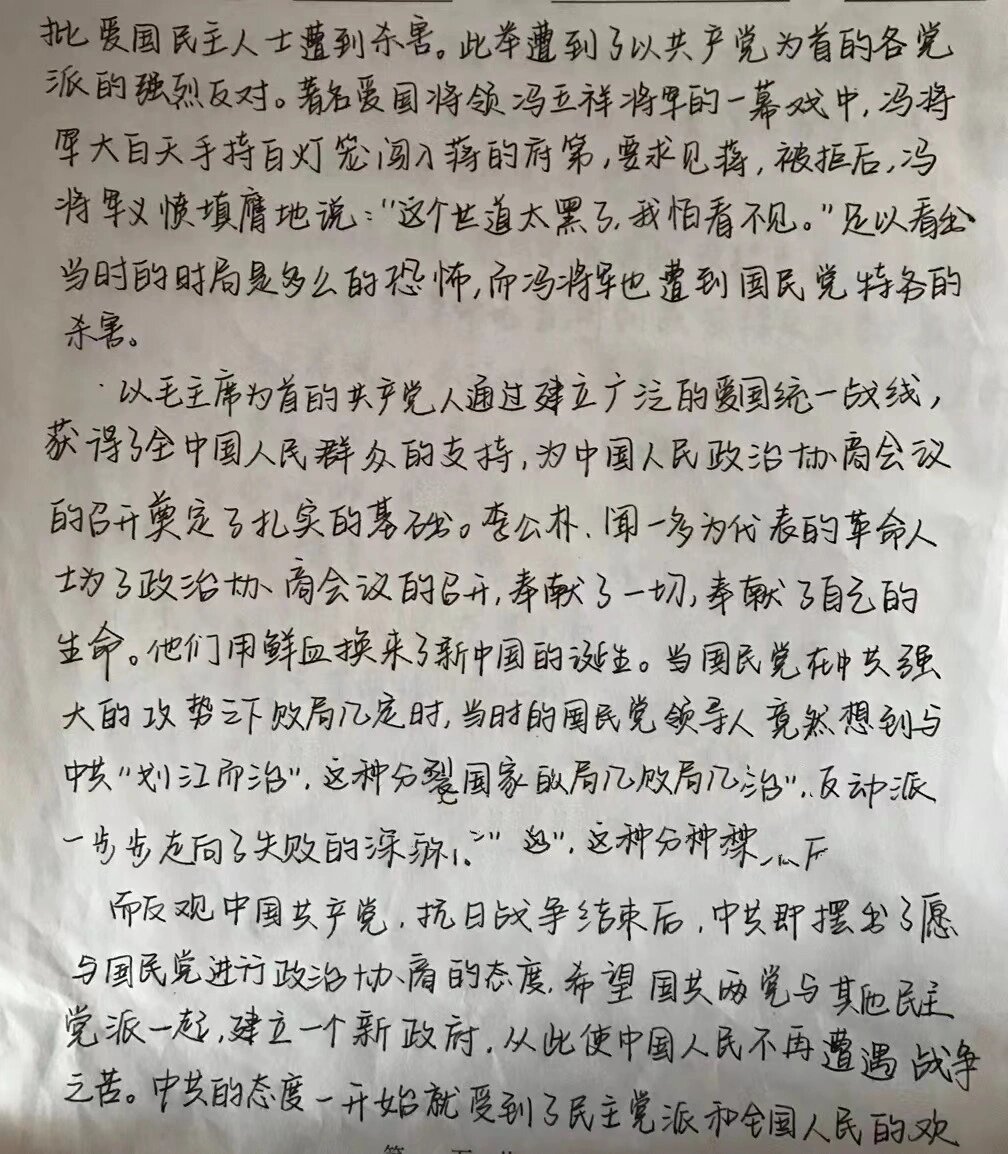 批爱国民主人士遭到杀害。此举遭到了以共产党为首的各党
派的强烈反对。著名爱国将领冯玉祥将军的一幕戏中，冯将
军大白天手持白灯笼闯入蒋的府第，要求见蒋，被拒后，冯
将军义愤填膺地说：“这个世道太黑了，我怕看不见。”足以看出
当时的时局是多么的恐怖，而冯将军也遭到国民党特务的
杀害。
以毛主席为首的共产党人通过建立广泛的爱国统一战线，
获得了全中国人民群众的支持，为中国人民政治协商会议
的召开奠定了扎实的基础。李公朴、闻一多为代表的革命人
士为了政治协商会议的召开，奉献了一切，奉献了自己的
生命。他们用鲜血换来了新中国的诞生。当国民党在中共强
大的攻势之下败局几定时，当时的国民党领导人竟然想到与
中共“划江而治”，这种分裂国家的局几败局几治”，反动派
一步步走向了失败的深 这种分种
而反观中国共产党，抗日战争结束后，中共即摆出了愿
与国民党进行政治协商的态度，希望国共两党与其他民主
党派一起，建立一个新政府，从此使中国人民不再遭遇战争
之苦。中共的态度一开始就受到了民主党派和全国人民的欢